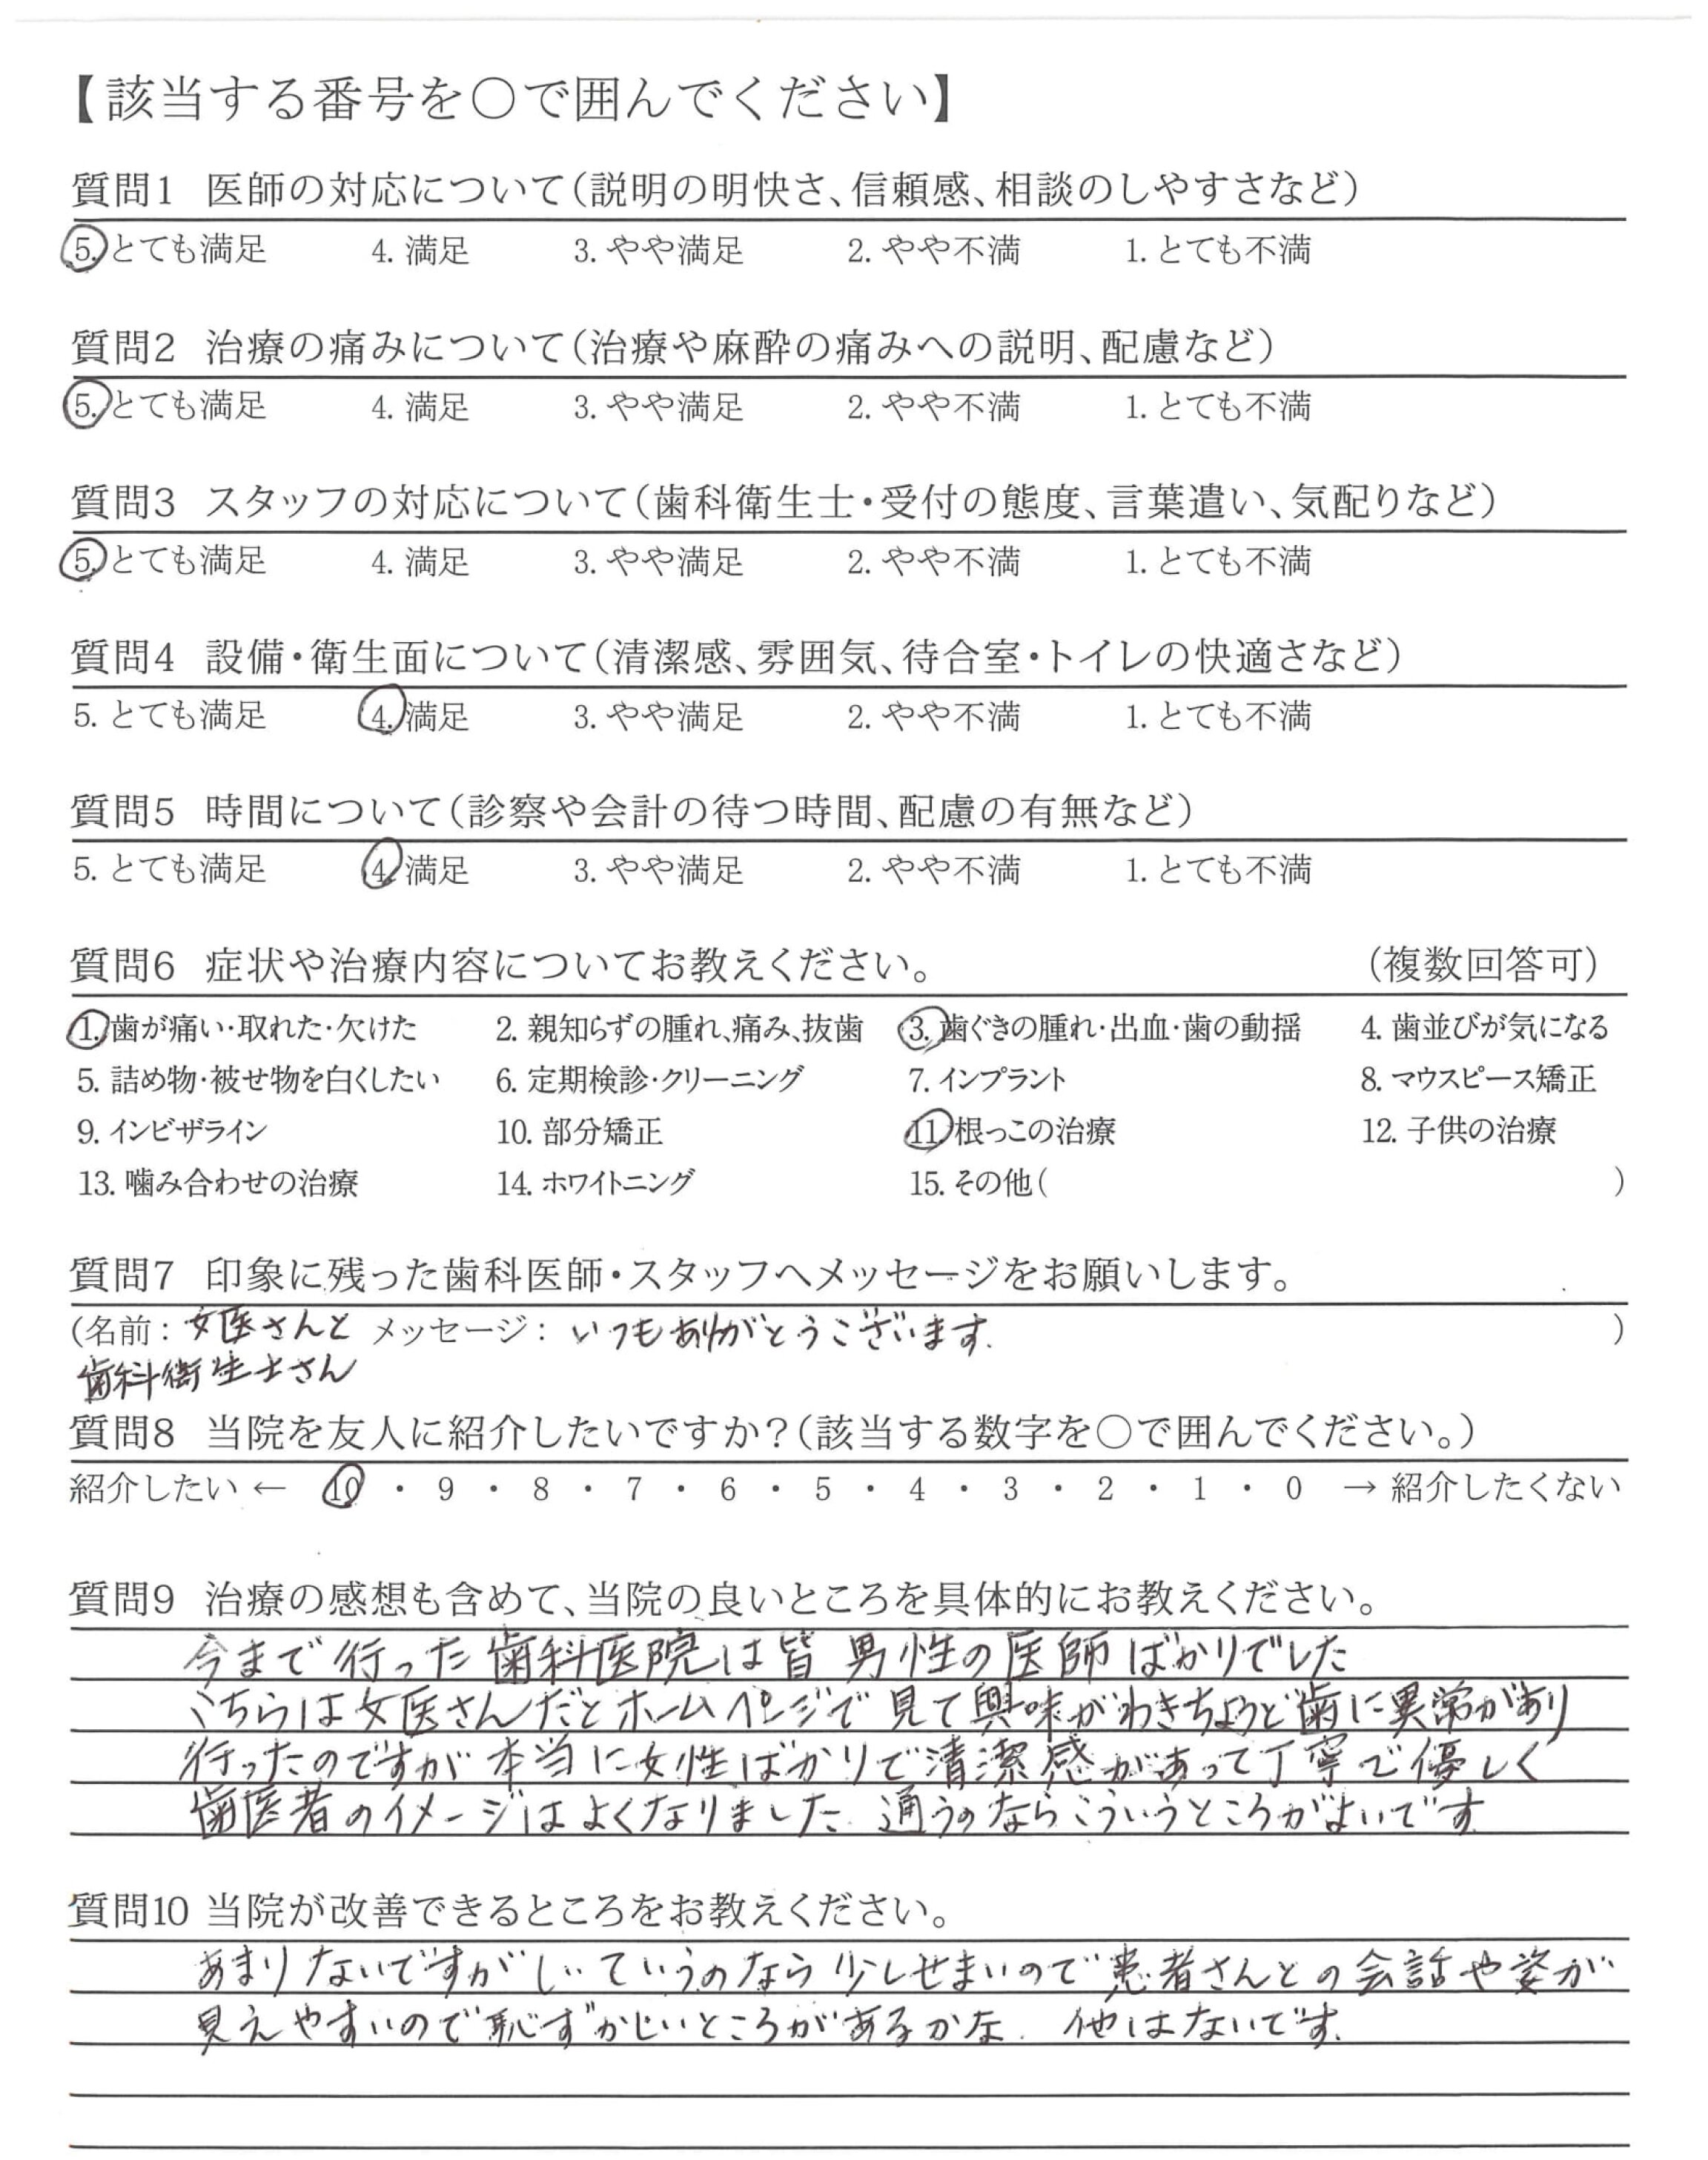 【該当する番号を○で囲んでください】
質問1 医師の対応について(説明の明快さ、信頼感、相談のしやすさなど)
5. とても満足 4. 満足 3. やや満足 2. やや不満 1. とても不満
質問2 治療の痛みについて(治療や麻酔の痛みへの説明、配慮など)
5. とても満足 4. 満足 3. やや満足 2. やや不満 1. とても不満
質問3 スタッフの対応について(歯科衛生士・受付の態度、言葉遣い、気配りなど)
5. とても満足 4. 満足 3. やや満足 2. やや不満 1. とても不満
質問4 設備・衛生面について(清潔感、雰囲気、待合室・トイレの快適さなど)
5. とても満足 4. 満足 3. やや満足 2. やや不満 1. とても不満
質問5 時間について(診察や会計の待つ時間、配慮の有無など)
5. とても満足 4. 満足 3. やや満足 2. やや不満 1. とても不満
質問6 症状や治療内容についてお教えください。 (複数回答可)
1. 歯が痛い・取れた・欠けた 2. 親知らずの腫れ、痛み、抜歯 3. 歯ぐきの腫れ・出血・歯の動揺 4. 歯並びが気になる
5. 詰め物・被せ物を白くしたい 6. 定期検診・クリーニング 7. インプラント 8. マウスピース矯正
9. インビザライン 10. 部分矯正 11. 根っこの治療 12. 子供の治療
13. 噛み合わせの治療 14. ホワイトニング 15. その他( )
質問7 印象に残った歯科医師・スタッフへメッセージをお願いします。
(名前: 女医さんと メッセージ: いつもありがとうございます. )
歯科衛生士さん
質問8 当院を友人に紹介したいですか?(該当する数字を○で囲んでください。)
紹介したい ← 10 ・ 9 ・ 8 ・ 7 ・ 6 ・ 5 ・ 4 ・ 3 ・ 2 ・ 1 ・ 0 → 紹介したくない
質問9 治療の感想も含めて、当院の良いところを具体的にお教えください。
今まで行った歯科医院は皆男性の医師ばかりでした
こちらは女医さんだとホームページで見て興味がわきちょうど歯に異常があり
行ったのですが本当に女性ばかりで清潔感があって丁寧で優しく
歯医者のイメージはよくなりました. 通うのならこういうところがよいです
質問10 当院が改善できるところをお教えください。
あまりないですがしいていうのなら少しせまいので患者さんとの会話や姿が
見えやすいので恥ずかしいところがあるかな. 他はないです.